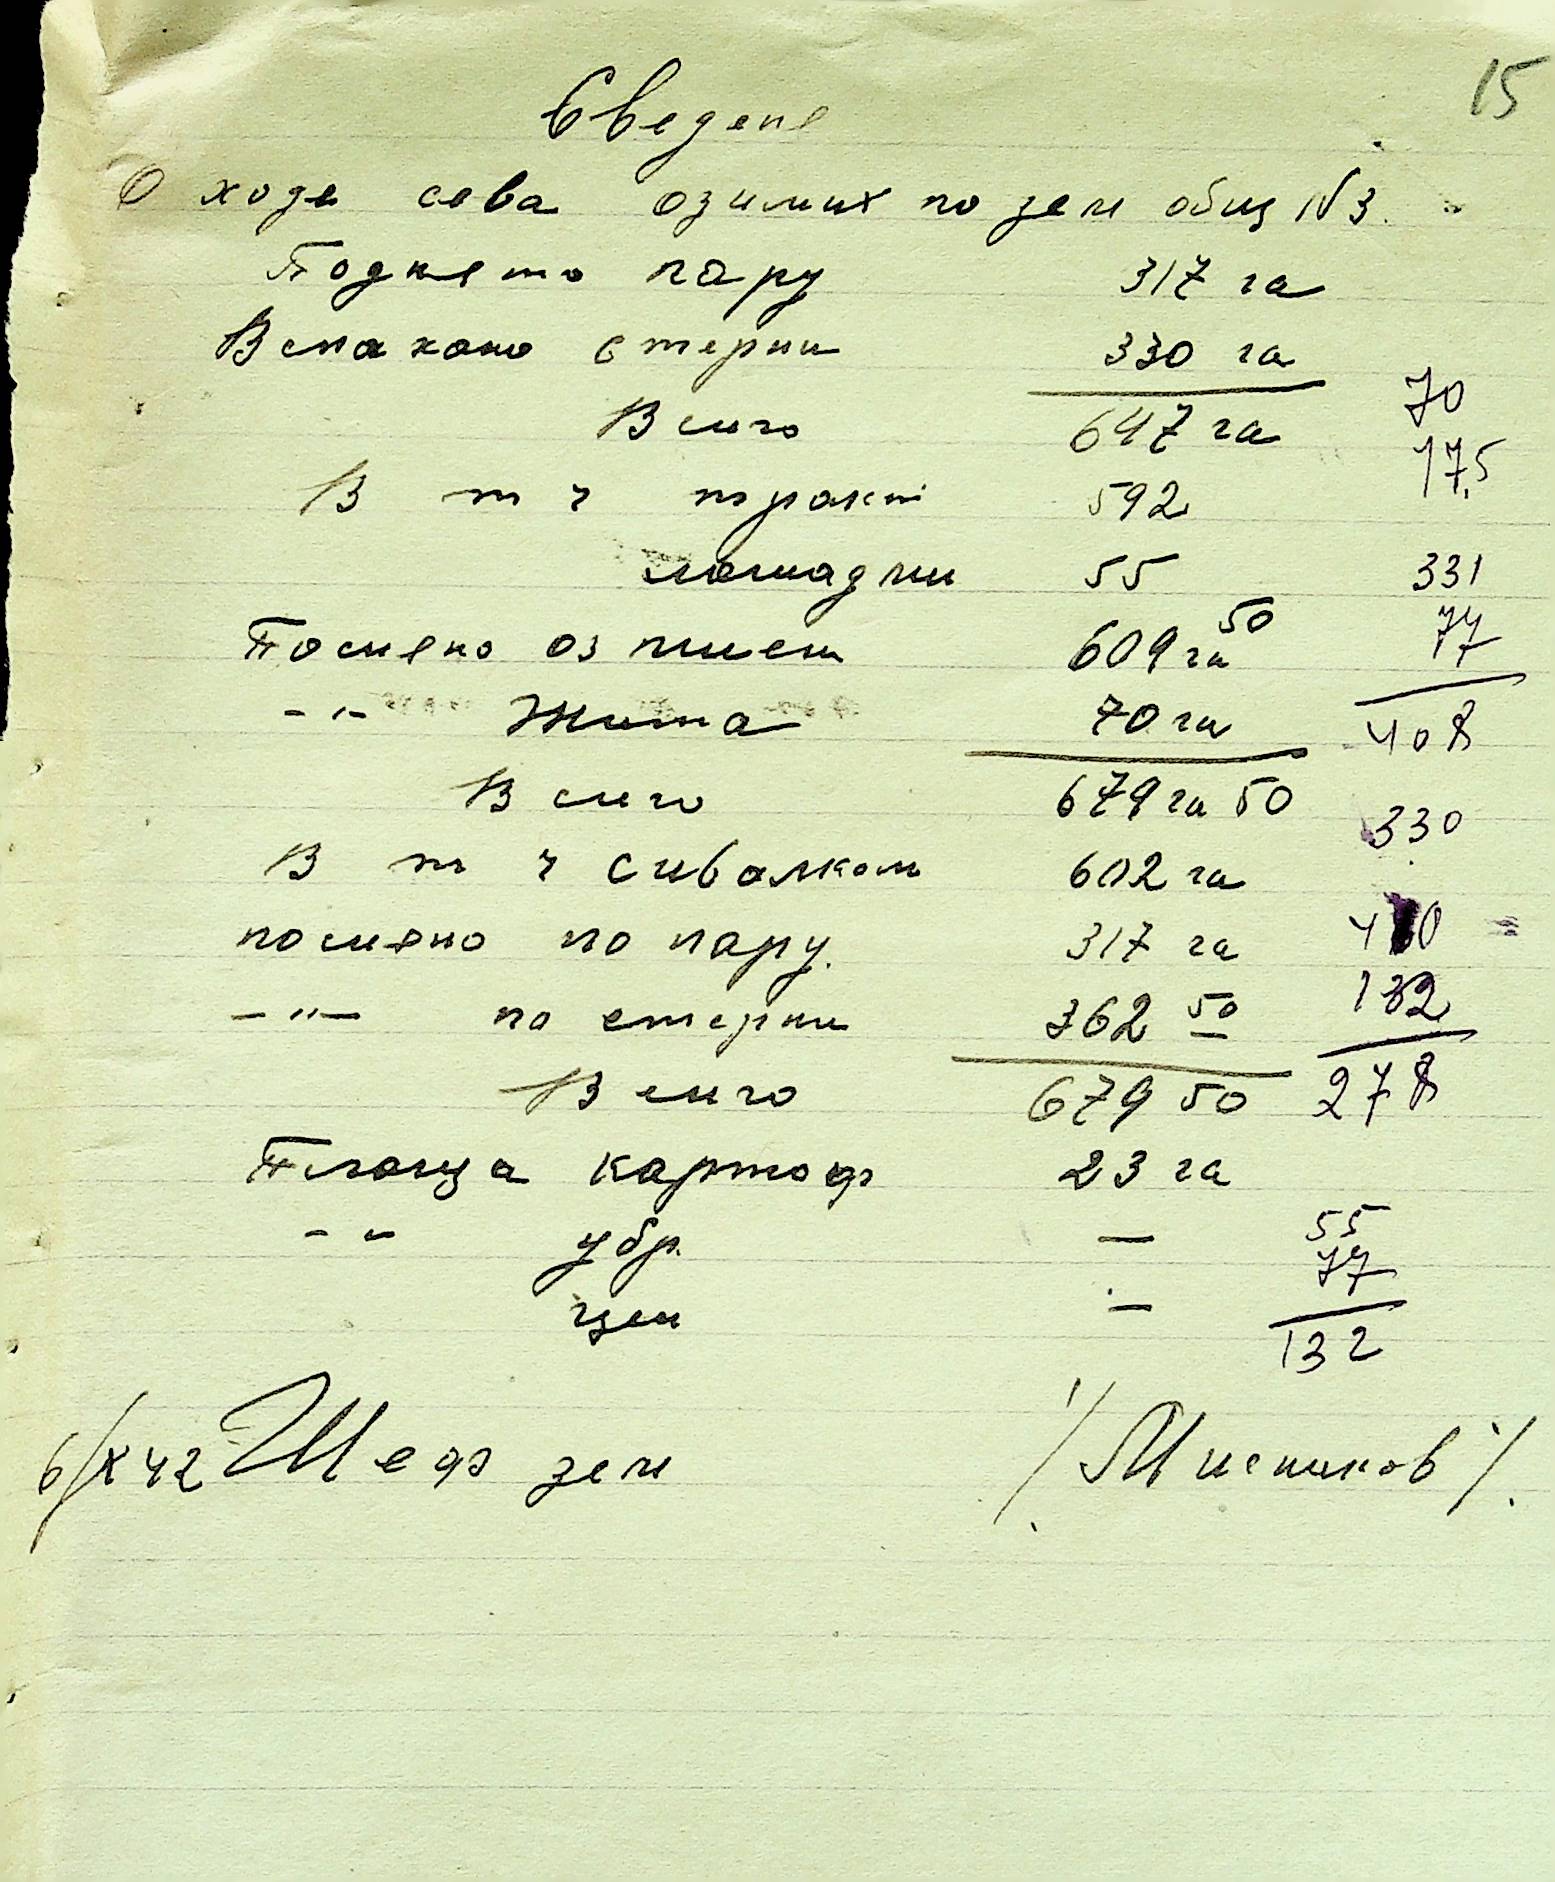 15
Сведене
О ходе сева озимих по зем общ N3.
Поднято пару 317 га
Вспахано стерни 330 га
70
Всиго 647 га
17,5
В т ч тракт 592
лошадми 55 331
Посияно оз пшен 609 га 50 77
-"- Жита 70 га 408
Всиго 679 га 50
330
В т ч сивалком 602 га
посияно по пару. 317 га 410
-"- по стерни 362 50 132
Всиго 679 50 278
Площа картоф 23 га
-"- убр. — 55
77
—
132
6/X 42 Шеф зем /Мисников/.